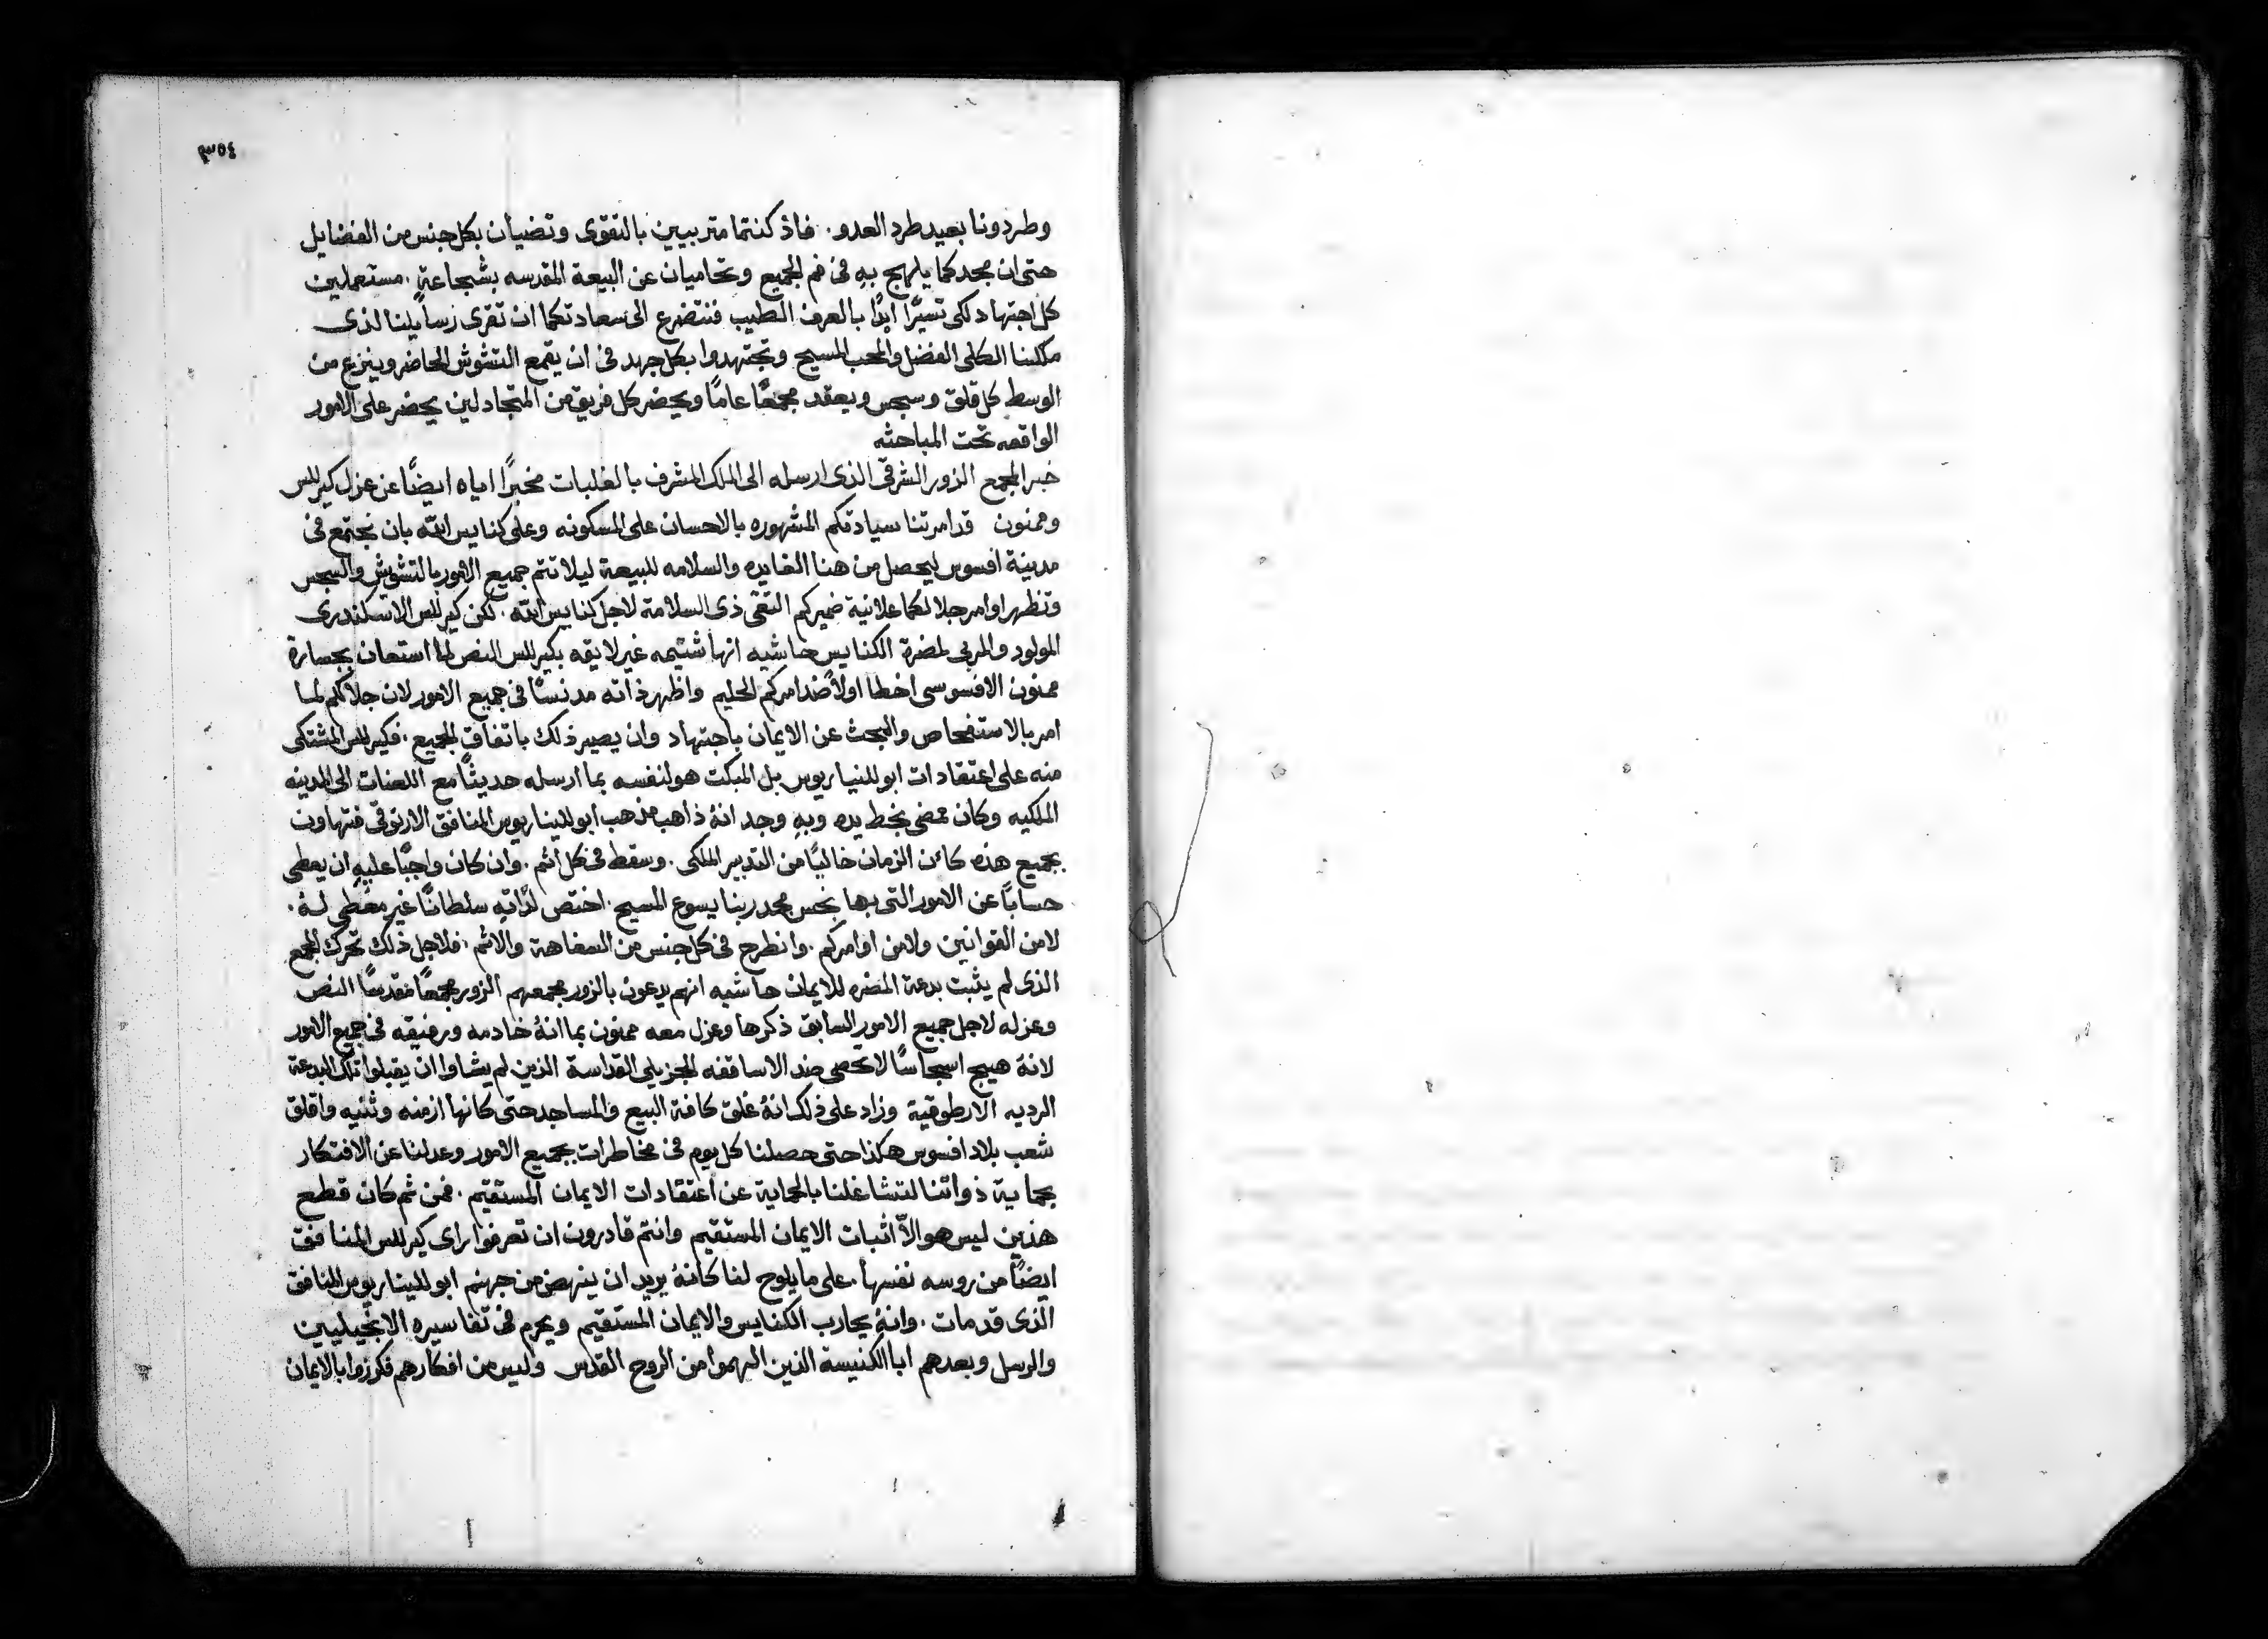 ٣٥٤
وطردونا بعيد طرد العدو. فاذ كنتما متربيين بالتقوى وتضيان بكل جنس من الفضايل
حتى ان مجدكما يلهج به فى فم الجميع وتحاميان عن البيعة المقدسه بشجاعةٍ. مستعملين
كل اجتهاد لكى تسيّرا ابدًا بالعرف الطيب فنتضرع الى سعادتكما ان تقرى رسايلنا لذى
ملكنا الكلى الفضل والمحب المسيح وتجتهدوا بكل جهد فى ان يقمع التشوش الحاضر وينزع من
الوسط كل قلق وسجس ويعقد مجمعًا عامًا ويحضر كل فريق من المتجادلين يحضر على الامور
الواقعه تحت المباحثه
خبر المجمع الزور الشرقى الذى ارسله الى الملك المشرف بالغلبات مخبرًا اياه ايضًا عن عزل كيرللس
وممنون قد امرتنا سيادتكم المشهوره بالاحسان على المسكونه وعلى كنايس الله بان نجتمع فى
مدينة افسوس ليحصل من هنا الفايده والسلامه للبيعة ليلا تتم جميع الامور بالتشويش والسجس
وتظهر اوامر جلالكما علانية ضميركم التقى ذى السلامة لاجل كنايس الله. لكن كيرللس الاسكندرى
المولود والمربى لمضرة الكنايس حاشيه انها شتيمه غير لايقه بكيرللس النص لما استعان بجسارة
ممنون الافسوسى اخطا اولاً ضد امركم الحليم واظهر ذاته مدنسًا فى جميع الامور لان جلالكم لما
امر بالاستفحاص والبحث عن الايمان باجتهاد وان يصير ذلك باتفاق الجميع. فكيرللس المشتكى
منه على اعتقادات ابوللنياريوس بل المبكت هو لنفسه بما ارسله حديثًا مع اللعنات الى المدينه
الملكيه وكان ممضى بخط يده وبهِ وجد انهُ ذاهب مذهب ابوللیناريوس المنافق الارتوقى فتهاون
بجميع هذه كائن الزمان خاليًا من التدبير الملكى. وسقط فى كل اثم. وان كان واجبًا عليهِ ان يعطى
حسابًا عن الامور التى بها نجس مجد ربنا يسوع المسيح. اختص لذاتهِ سلطانًا غير معطى لهُ.
لا من القوانين ولا من اوامركم. وانطرح فى كل جنس من السفاهة والاثم. فلاجل ذلك تحرك المجمع
الذى لم يثبت بدعة المضره للايمان حاشيه انهم يدعون بالزور مجمعهم الزور مجمعًا مقدسًا النص
وعزله لاجل جميع الامور السابق ذكرها وعزل معه ممنون بما انهُ خادمه ورفيقه فى جميع الامور
لانهُ هيج اسجاسًا لا تحصى ضد الاساقفه الجزيلى القداسة الذين لم يشاوا ان يقبلوا تلك البدعة
الرديه الارطوقية وزاد على ذلك انهُ غلق كافة البيع والمساجد حتى كانها ازمنه وثنيه واقلق
شعب بلاد افسوس هكذا حتى حصلنا كل يوم فى مخاطرات بجميع الامور وعدلنا عن الافتكار
بحماية ذواتنا لتشاغلنا بالحماية عن اعتقادات الايمان المستقيم. فمن ثم كان قطع
هذين ليس هو الاّ اثبات الايمان المستقيم وانتم قادرون ان تعرفوا راى كيرللس المنافق
ايضًا من روسه نفسها. على ما يلوح لنا كانهُ يريد ان ينهض من جهنم ابوللیناريوس المنافق
الذى قد مات. وانهُ يحارب الكنايس والايمان المستقيم ويحرم فى تفاسيره الانجيليين
والرسل وبعدهم ابا الكنيسة الذين الهموا من الروح القدس وليس من افكارهم فكرزوا بالايمان